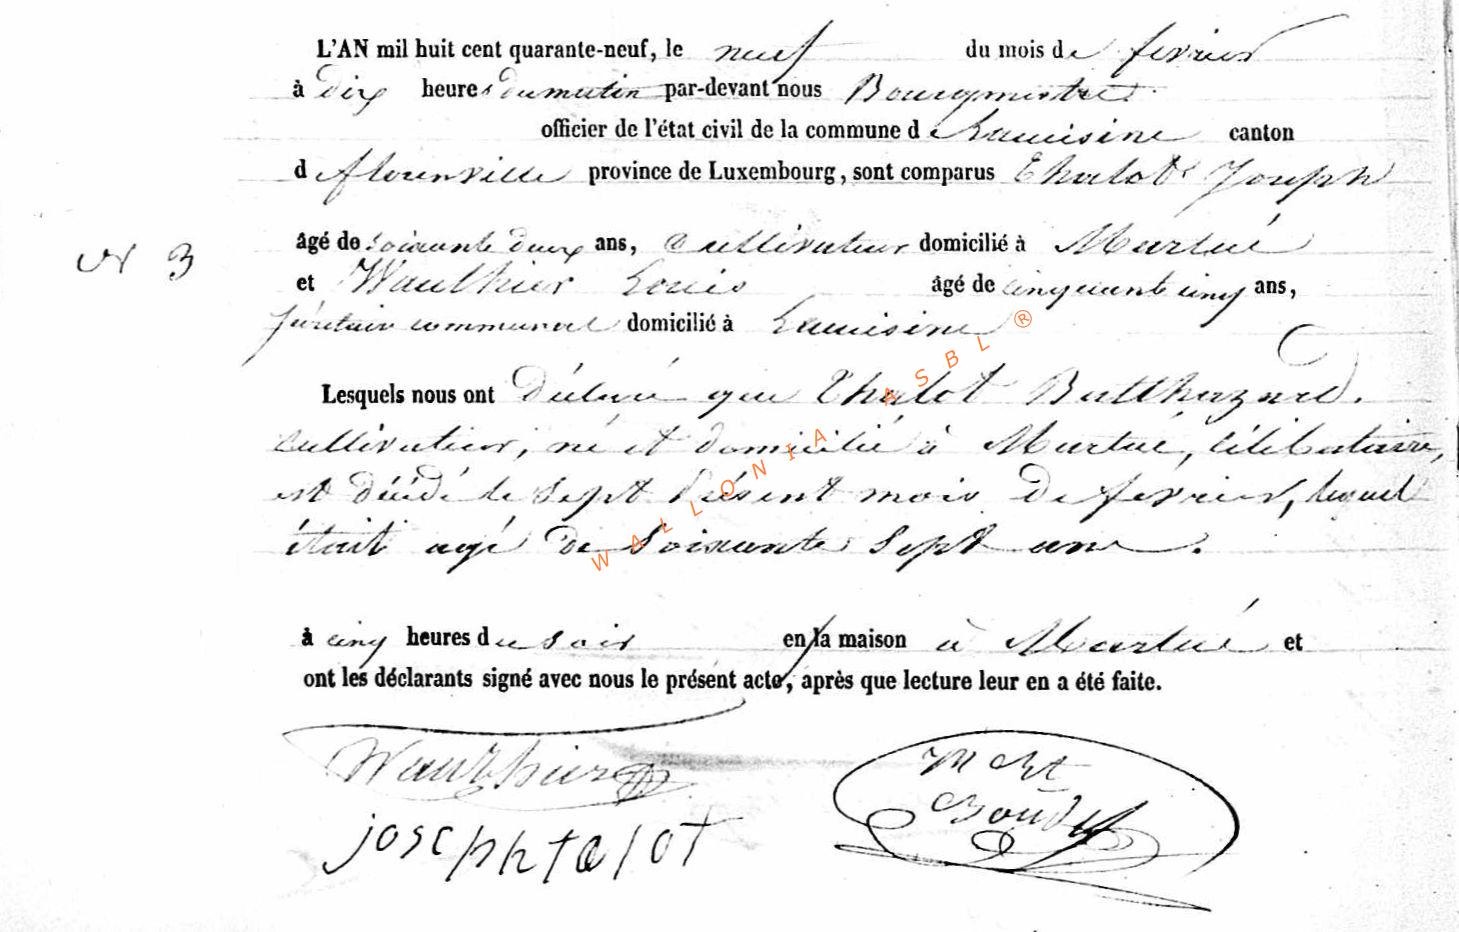 L'AN mil huit cent quarante-neuf, le neuf du mois de fevrier
à dix heures du matin par-devant nous Bourgmestre
officier de l'état civil de la commune de Lacuisine canton
d florenville province de Luxembourg, sont comparus Thalot Joseph
âgé de soixante deux ans, Cultivateur domicilié à Martué
N 3
et Wauthier Louis âgé de cinquante cinq ans,
communal domicilié à Lacuisine
Lesquels nous ont déclaré que Thalot Balthazard,
cultivateur, né et domicilié à Martué, célibataire,
est décédé le sept présent mois de fevrier, lequel
était agé de soixante sept ans.
à cinq heures du soir en la maison à Martué et
ont les déclarants signé avec nous le présent acte, après que lecture leur en a été faite.
Wauthier
josephtalot
WALLONIA ASBL ®